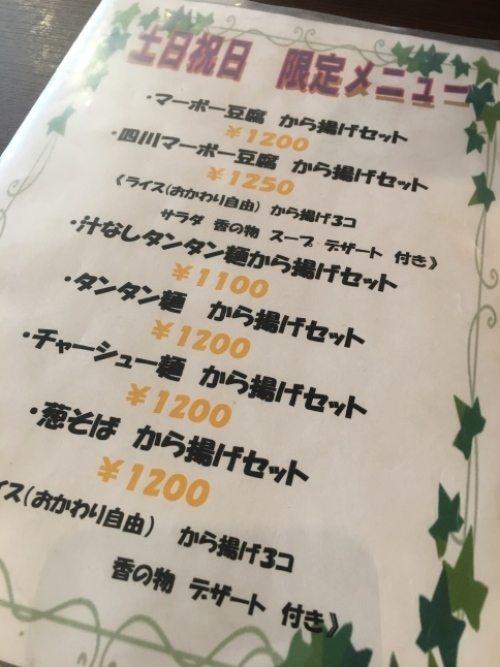 土日祝日 限定メニュー
・マーボー豆腐 から揚げセット
¥1200
・四川マーボー豆腐 から揚げセット
¥1250
《ライス(おかわり自由) から揚げ3コ
サラダ 香の物 スープ デザート 付き》
・汁なしタンタン麺から揚げセット
¥1100
・タンタン麺 から揚げセット
¥1200
・チャーシュー麺 から揚げセット
¥1200
・葱そば から揚げセット
¥1200
イス(おかわり自由) から揚げ3コ
香の物 デザート 付き》